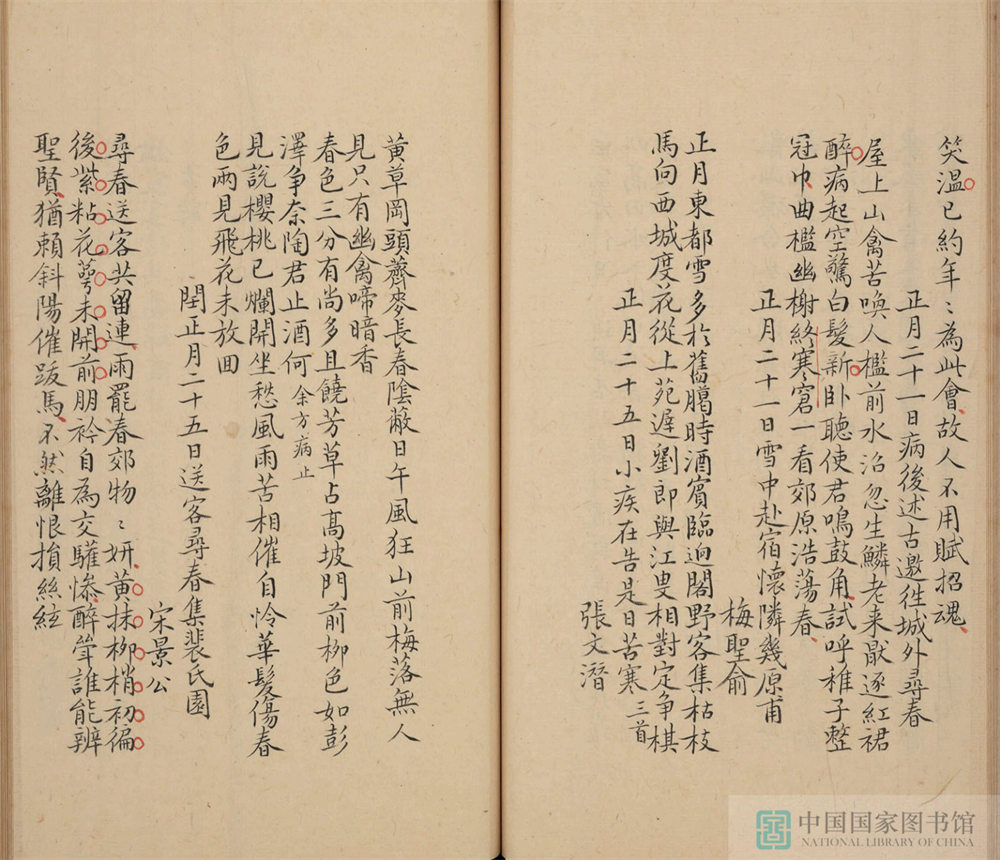 笑溫已約年〻為此會故人不用賦招魂
正月二十一日病後述古邀往城外尋春
屋上山禽苦喚人檻前水沼忽生鱗老来厭逐紅裙
醉病起空驚白髮新卧聽使君鳴鼓角試呼稚子整
冠巾曲檻幽榭終寒窘一看郊原浩蕩春
正月二十一日雪中赴宿懷隣幾原甫
梅聖俞
正月東都雪多於舊臈時酒賓臨迥閣野客集枯枝
馬向西城度花從上苑遲劉郎與江叟相對定争棋
正月二十五日小疾在告是日苦寒三首
張文潛
黄草岡頭薺麥長春陰蔽日午風狂山前梅落無人
見只有幽禽啼暗香
春色三分有尚多且饒芳草占髙坡門前栁色如彭
澤争奈陶君止酒何余方病止
見説櫻桃已爛開坐愁風雨苦相催自怜華髮傷春
色兩見飛花未放囬
閏正月二十五日送客尋春集裴氏園
宋景公
尋春送客共留連雨罷春郊物〻妍黄抹栁梢初徧
後紫粘花蕚未開前朋衿自為交驩惨醉聳誰能辨
聖賢猶頼斜陽催跋馬不然離恨損絲絃
中国国家图书馆
NATIONAL LIBRARY OF CHINA